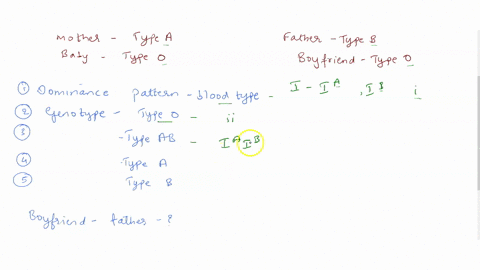 Mother - Type A Father - Type B
Baby - Type O Boyfriend - Type O
① Dominance pattern - blood type - I - I^A, I^B i
② Genotype - Type O - ii
③ - Type AB - I^A I^B
④ Type A
⑤ Type B
Boyfriend - father - ?